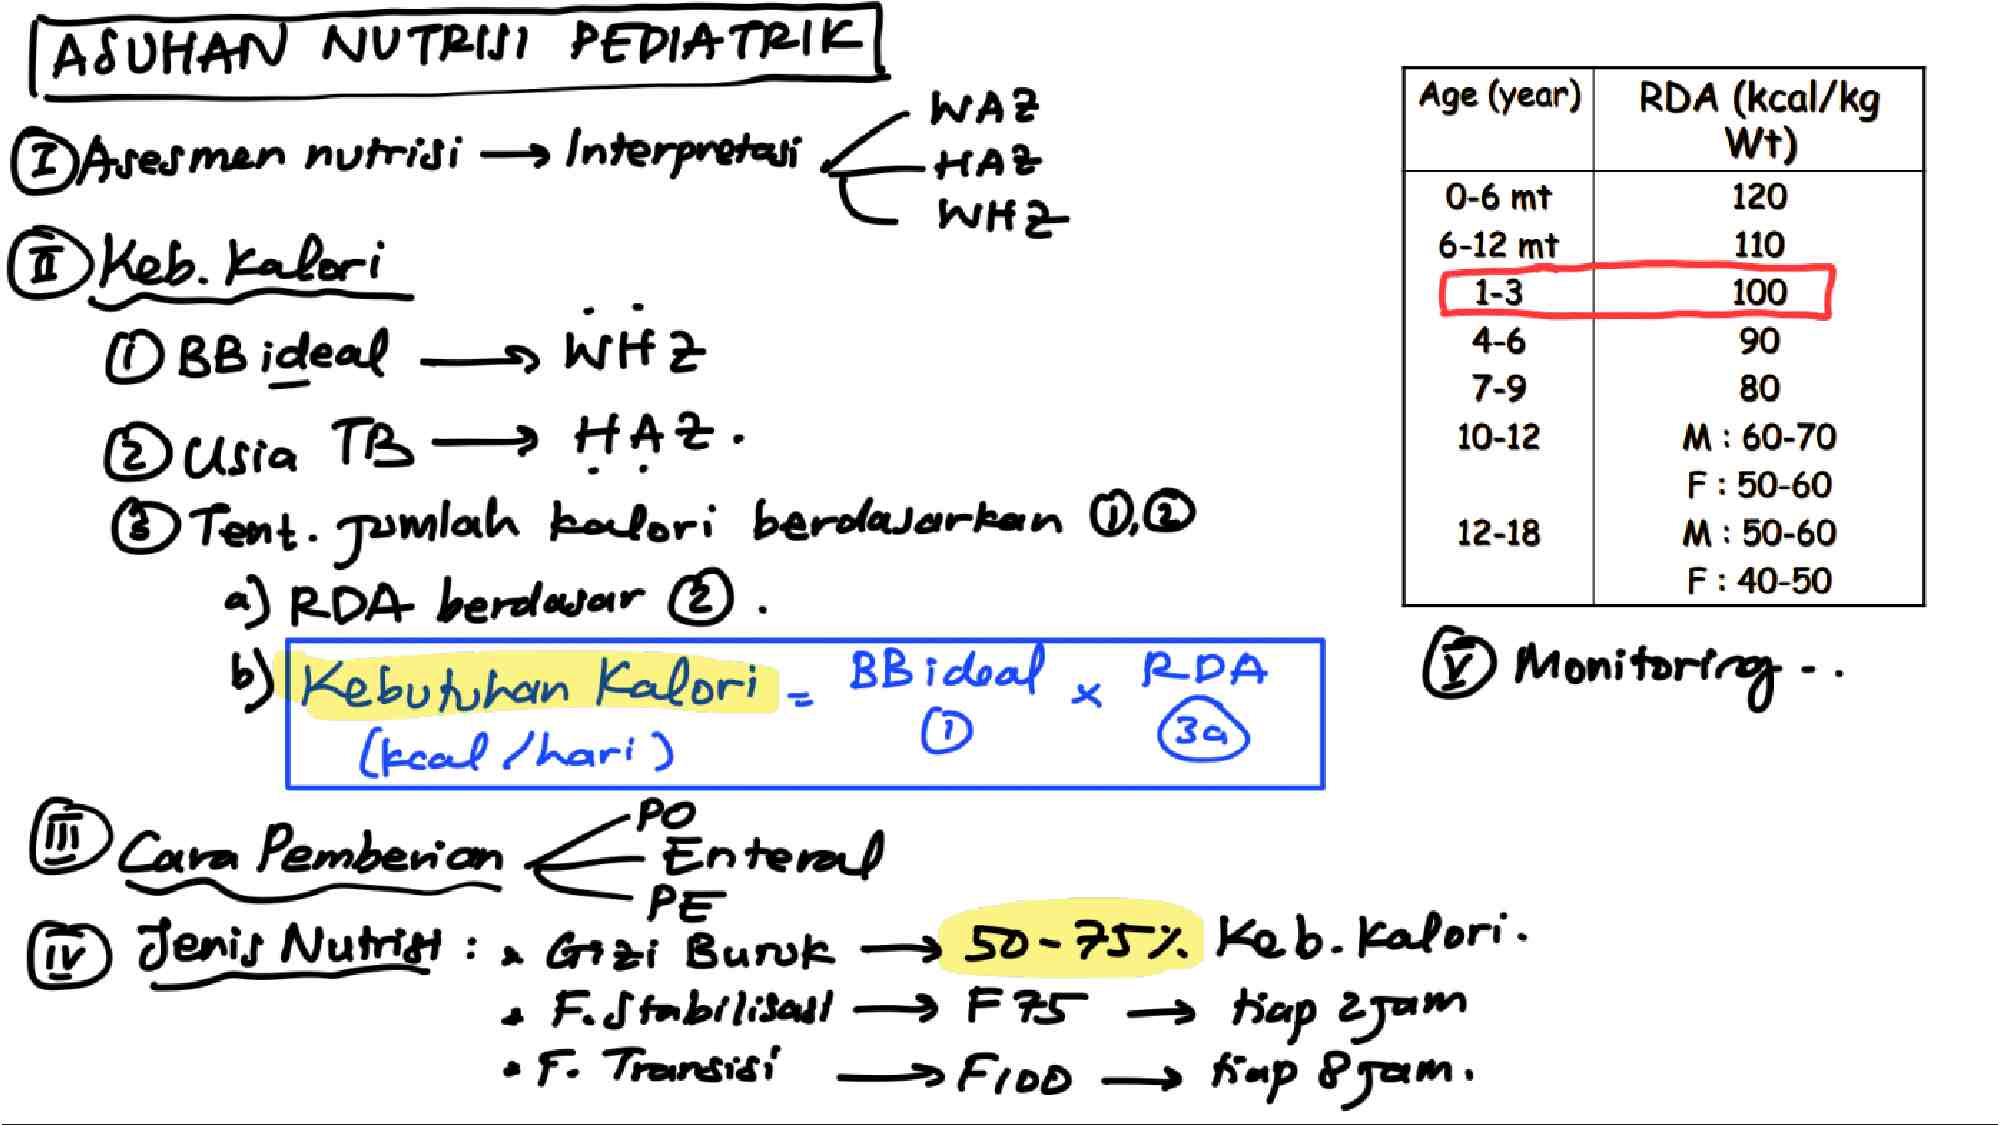 ASUHAN NUTRISI PEDIATRIK
I Asesmen nutrisi → Interpretasi
WAZ
HAZ
WHZ
II Keb. Kalori
1 BB ideal → WHZ
2 Usia TB → HAZ.
3 Tent. jumlah kalori berdasarkan 1,2
a) RDA berdasar 2.
b) Kebutuhan Kalori = BB ideal x RDA
(kcal/hari) 1 3a
III Cara Pemberian
PO
Enteral
PE
IV Jenis Nutrisi : • Gizi Buruk → 50-75% Keb. Kalori.
• F. Stabilisasi → F75 → tiap 2 jam
• F. Transisi → F100 → tiap 8 jam.
Age (year) RDA (kcal/kg Wt)
0-6 mt 120
6-12 mt 110
1-3 100
4-6 90
7-9 80
10-12 M : 60-70
F : 50-60
12-18 M : 50-60
F : 40-50
V Monitoring - .